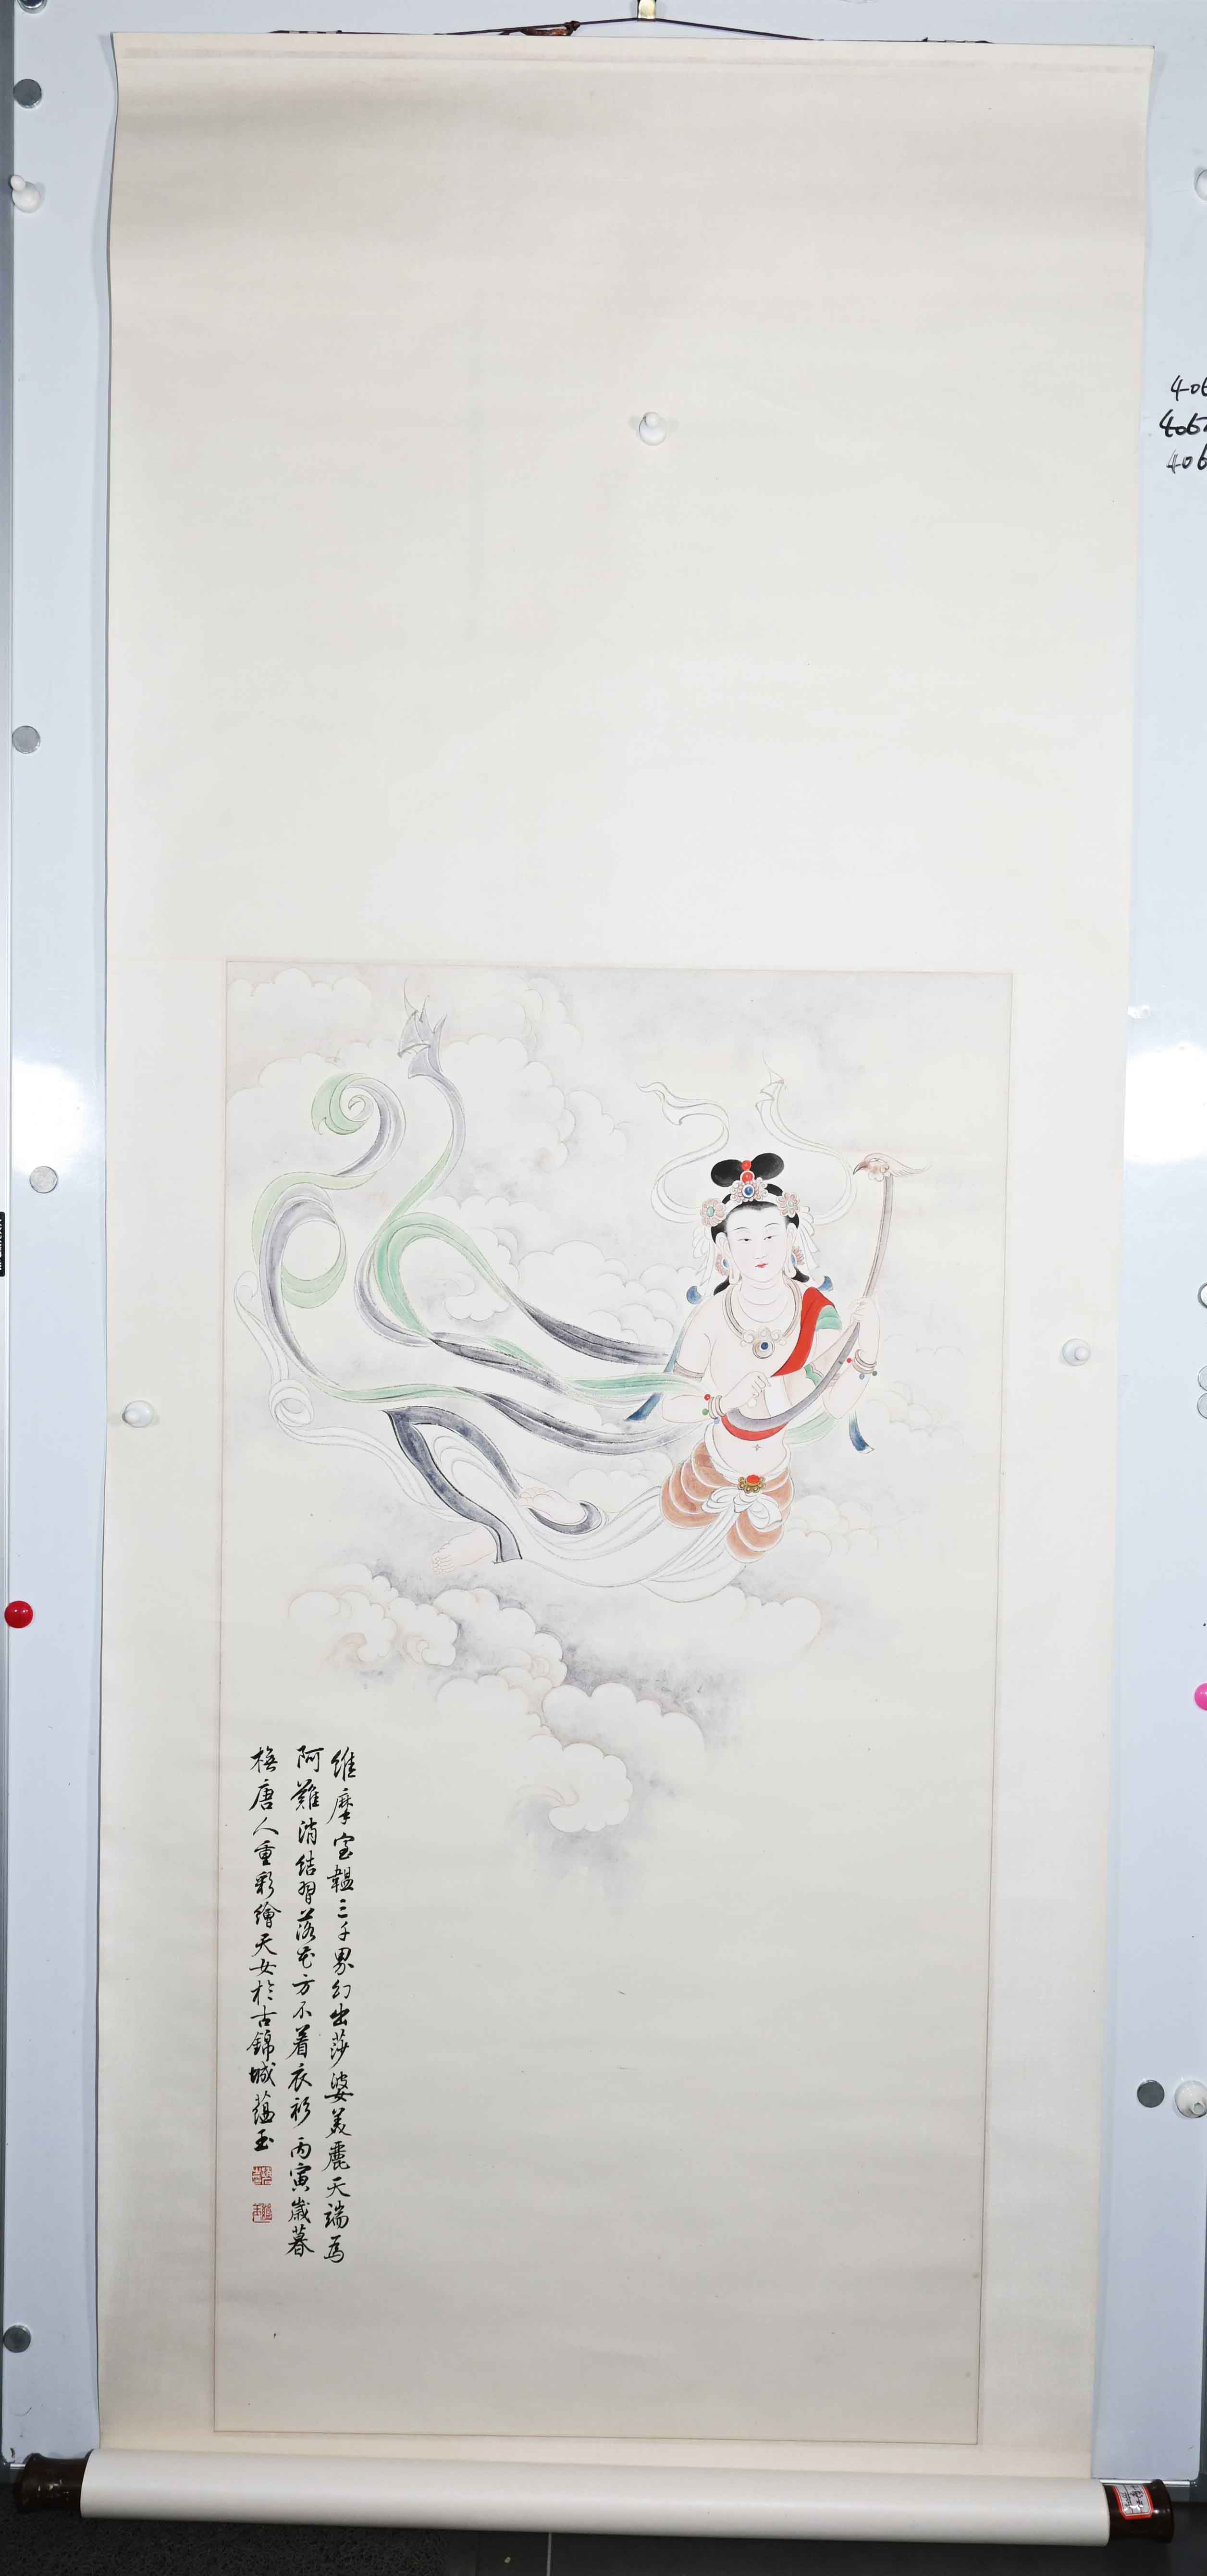 維摩室韞三千界幻出莎婆美麗天端為
阿難消結習落花方不着衣衫丙寅歲暮
橅唐人重彩繪天女於古錦城蘊玉
406
406